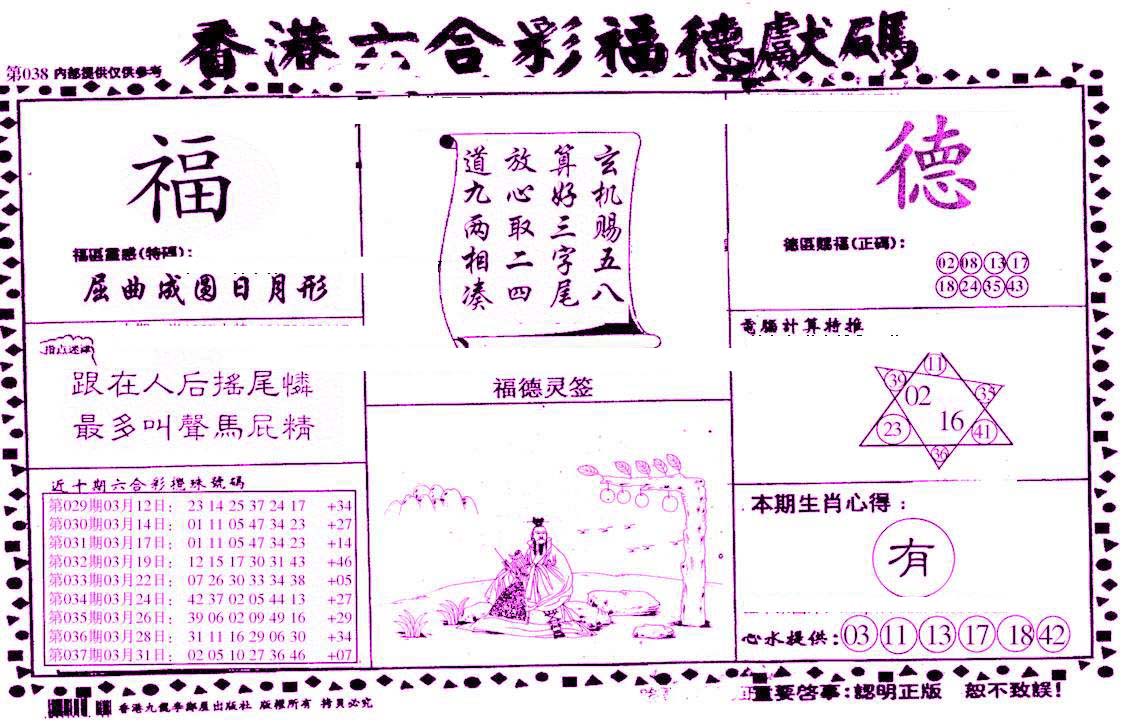 香港六合彩福德獻碼
第038 内部提供仅供参考
福
福區靈感(特碼):
屈曲成圓日月形
跟在人后搖尾憐
最多叫聲馬屁精
近十期六合彩攪珠號碼
第029期03月12日: 23 14 25 37 24 17 +34
第030期03月14日: 01 11 05 47 34 23 +27
第031期03月17日: 01 11 05 47 34 23 +14
第032期03月19日: 12 15 17 30 31 43 +46
第033期03月22日: 07 26 30 33 34 38 +05
第034期03月24日: 42 37 02 05 44 13 +27
第035期03月26日: 39 06 02 09 49 16 +29
第036期03月28日: 31 11 16 29 06 30 +34
第037期03月31日: 02 05 10 27 36 46 +07
玄机赐五八
算好三字尾
放心取二四
道九两相凑
福德灵签
德
德區賜福(正碼):
02 08 13 17
18 24 35 43
電腦計算特推
11
39 02 33
23 16 41
36
本期生肖心得:
有
心水提供: 03 11 13 17 18 42
重要啓事:認明正版 恕不致誤!
版權所有 拷貝必究